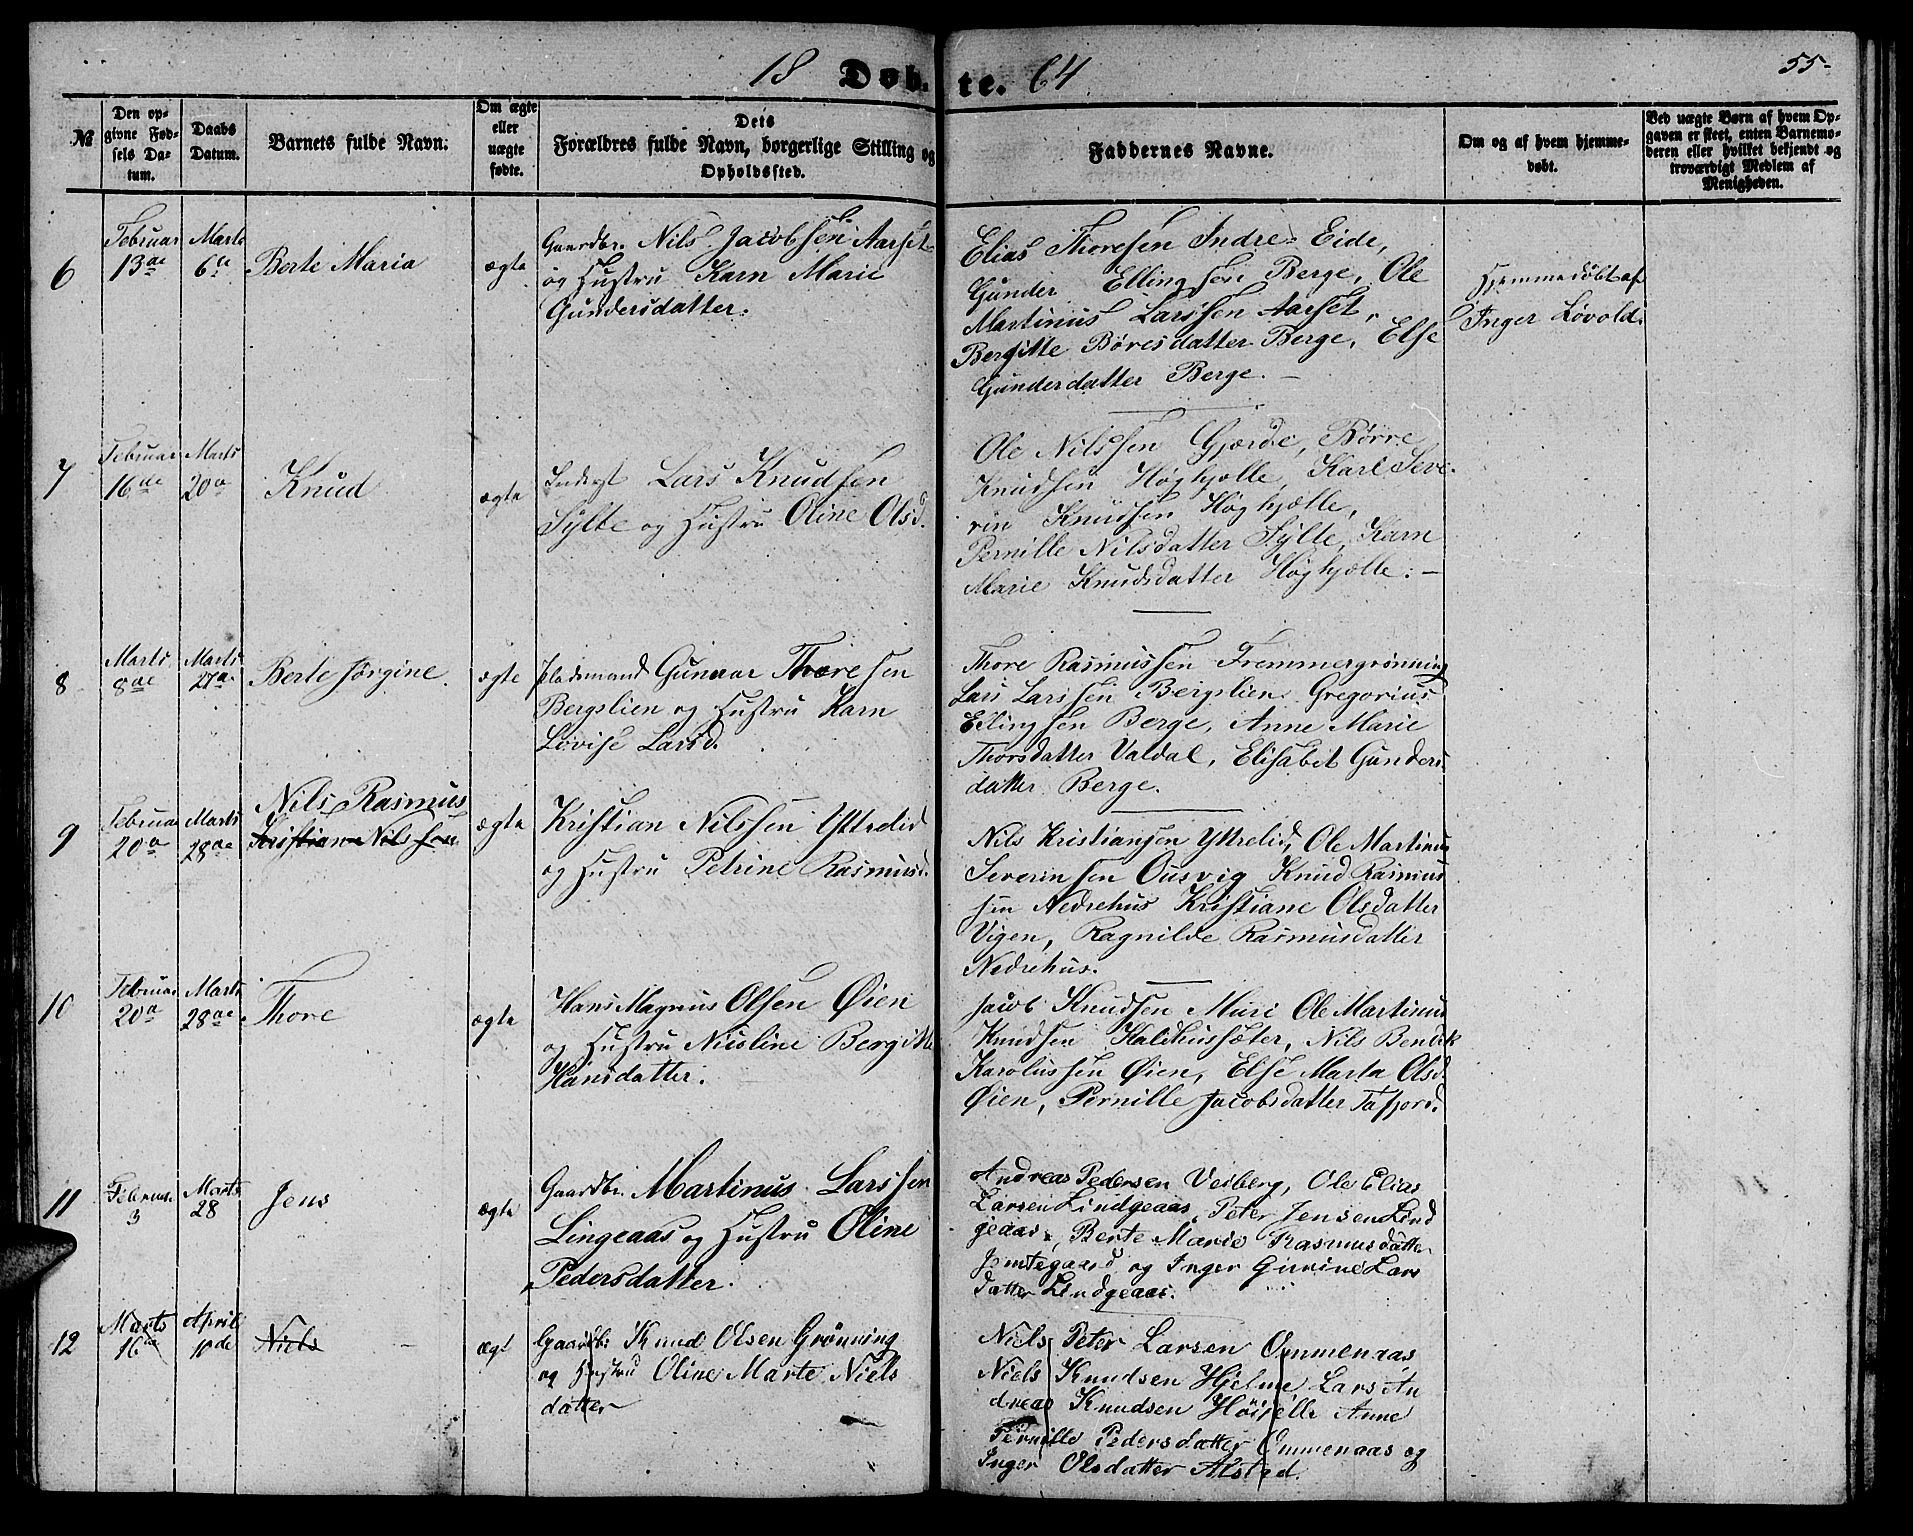 18 Døb-te. 64
55-
№
Den op-
givne Fød-
sels Da-
tum.
Daabs
Datum.
Barnets fulde Navn.
Om ægte
eller
uægte
fødte.
Dets
Forældres fulde Navn, borgerlige Stilling og
Opholdssted.
Faddernes Navne.
Om og af hvem hjemme-
døbt.
Ved uægte Børn af hvem Op-
gaven er skeet, enten Barnemo-
deren eller hvilket bekjendt og
troværdigt Medlem af
Menigheden.
6
Februar
13de
Marts
6te
Berte Maria
ægte
Gaardbr. Nils Jacobsen Aarset
og Hustru Karn Marie
Gundersdatter.
Elias Thoresen Indre-Eide,
Gunder Ellingsen Berge, Ole
Martinus Larssen Aarset,
Bergitte Børesdatter Berge, Else
Gunderdatter Berge. –
Hjemmedøbt af
Inger Løvold.
7
Februar
16de
Marts
20de
Knud
ægte
Lars Knudsen
Sylte og Hustru Oline Olsd.
Ole Nilssen Gjærde, Børre
Knudsen Høghjelle, Karl Seve-
rin Knudsen Høghjelle,
Pernille Nilsdatter Sylte, Karn
Marie Knudsdatter Høghjelle. –
8
Marts
8de
Marts
27de
Berte Jørgine.
ægte
pladsmand Gunnar Thoresen
Bergslien og Hustru Karn
Lovise Larsd.
Thore Rasmussen Fremmergrønning
Lars Larssen Bergslien. Gregorius
Ellingsen Berge, Anne Marie
Thorsdatter Valdal, Elisabet Gunders
datter Berge.
9
Februar
20de
Marts
28de
Nils Rasmus
Kristian Nilssen
ægte
Kristian Nilssen Yttrelid
og Hustru Petrine Rasmusd.
Nils Kristiansen Yttrelid, Ole Martinus
Severinsen Ousvig Knud Rasmus
sen Nedrehus Kristiane Olsdatter
Vigen, Ragnilde Rasmusdatter
Nedrehus.
10
Februar
20de
Marts
28de
Thore
ægte
Hans Magnus Olsen Øien
og Hustru Nicoline Bergitte
Hansdatter.
Jacob Knudsen Muri Ole Martinus
Knudsen Kaldhussæter, Nils Bendik
Karolussen Øien, Else Marta Olsd.
Øien, Pernille Jacobsdatter Tafjord.
11
Februar.
3
Marts
28
Jens
ægte
Gaardbr. Martinus Larssen
Lingeaas og Hustru Oline
Pedersdatter.
Andreas Pedersen Veiberg, Ole Elias
Larsen Lindgeaas, Peter Jensen Lind
geaas, Berte Marie Rasmusdatter
og Inger Gurine Lars
datter Lindgeaas.
12
Marts
16de
April
10de
Niels
ægt
Gaardb: Knud Olsen Grønning
og Hustru Oline Marte Niels
datter
Niels Peter Larsen Ommenaas
Niels Knudsen Hjelme Lars An
dreas Knudsen Anne
Pernille Pedersdatter Ommenaas og
Inger Olsdatter Alstad.